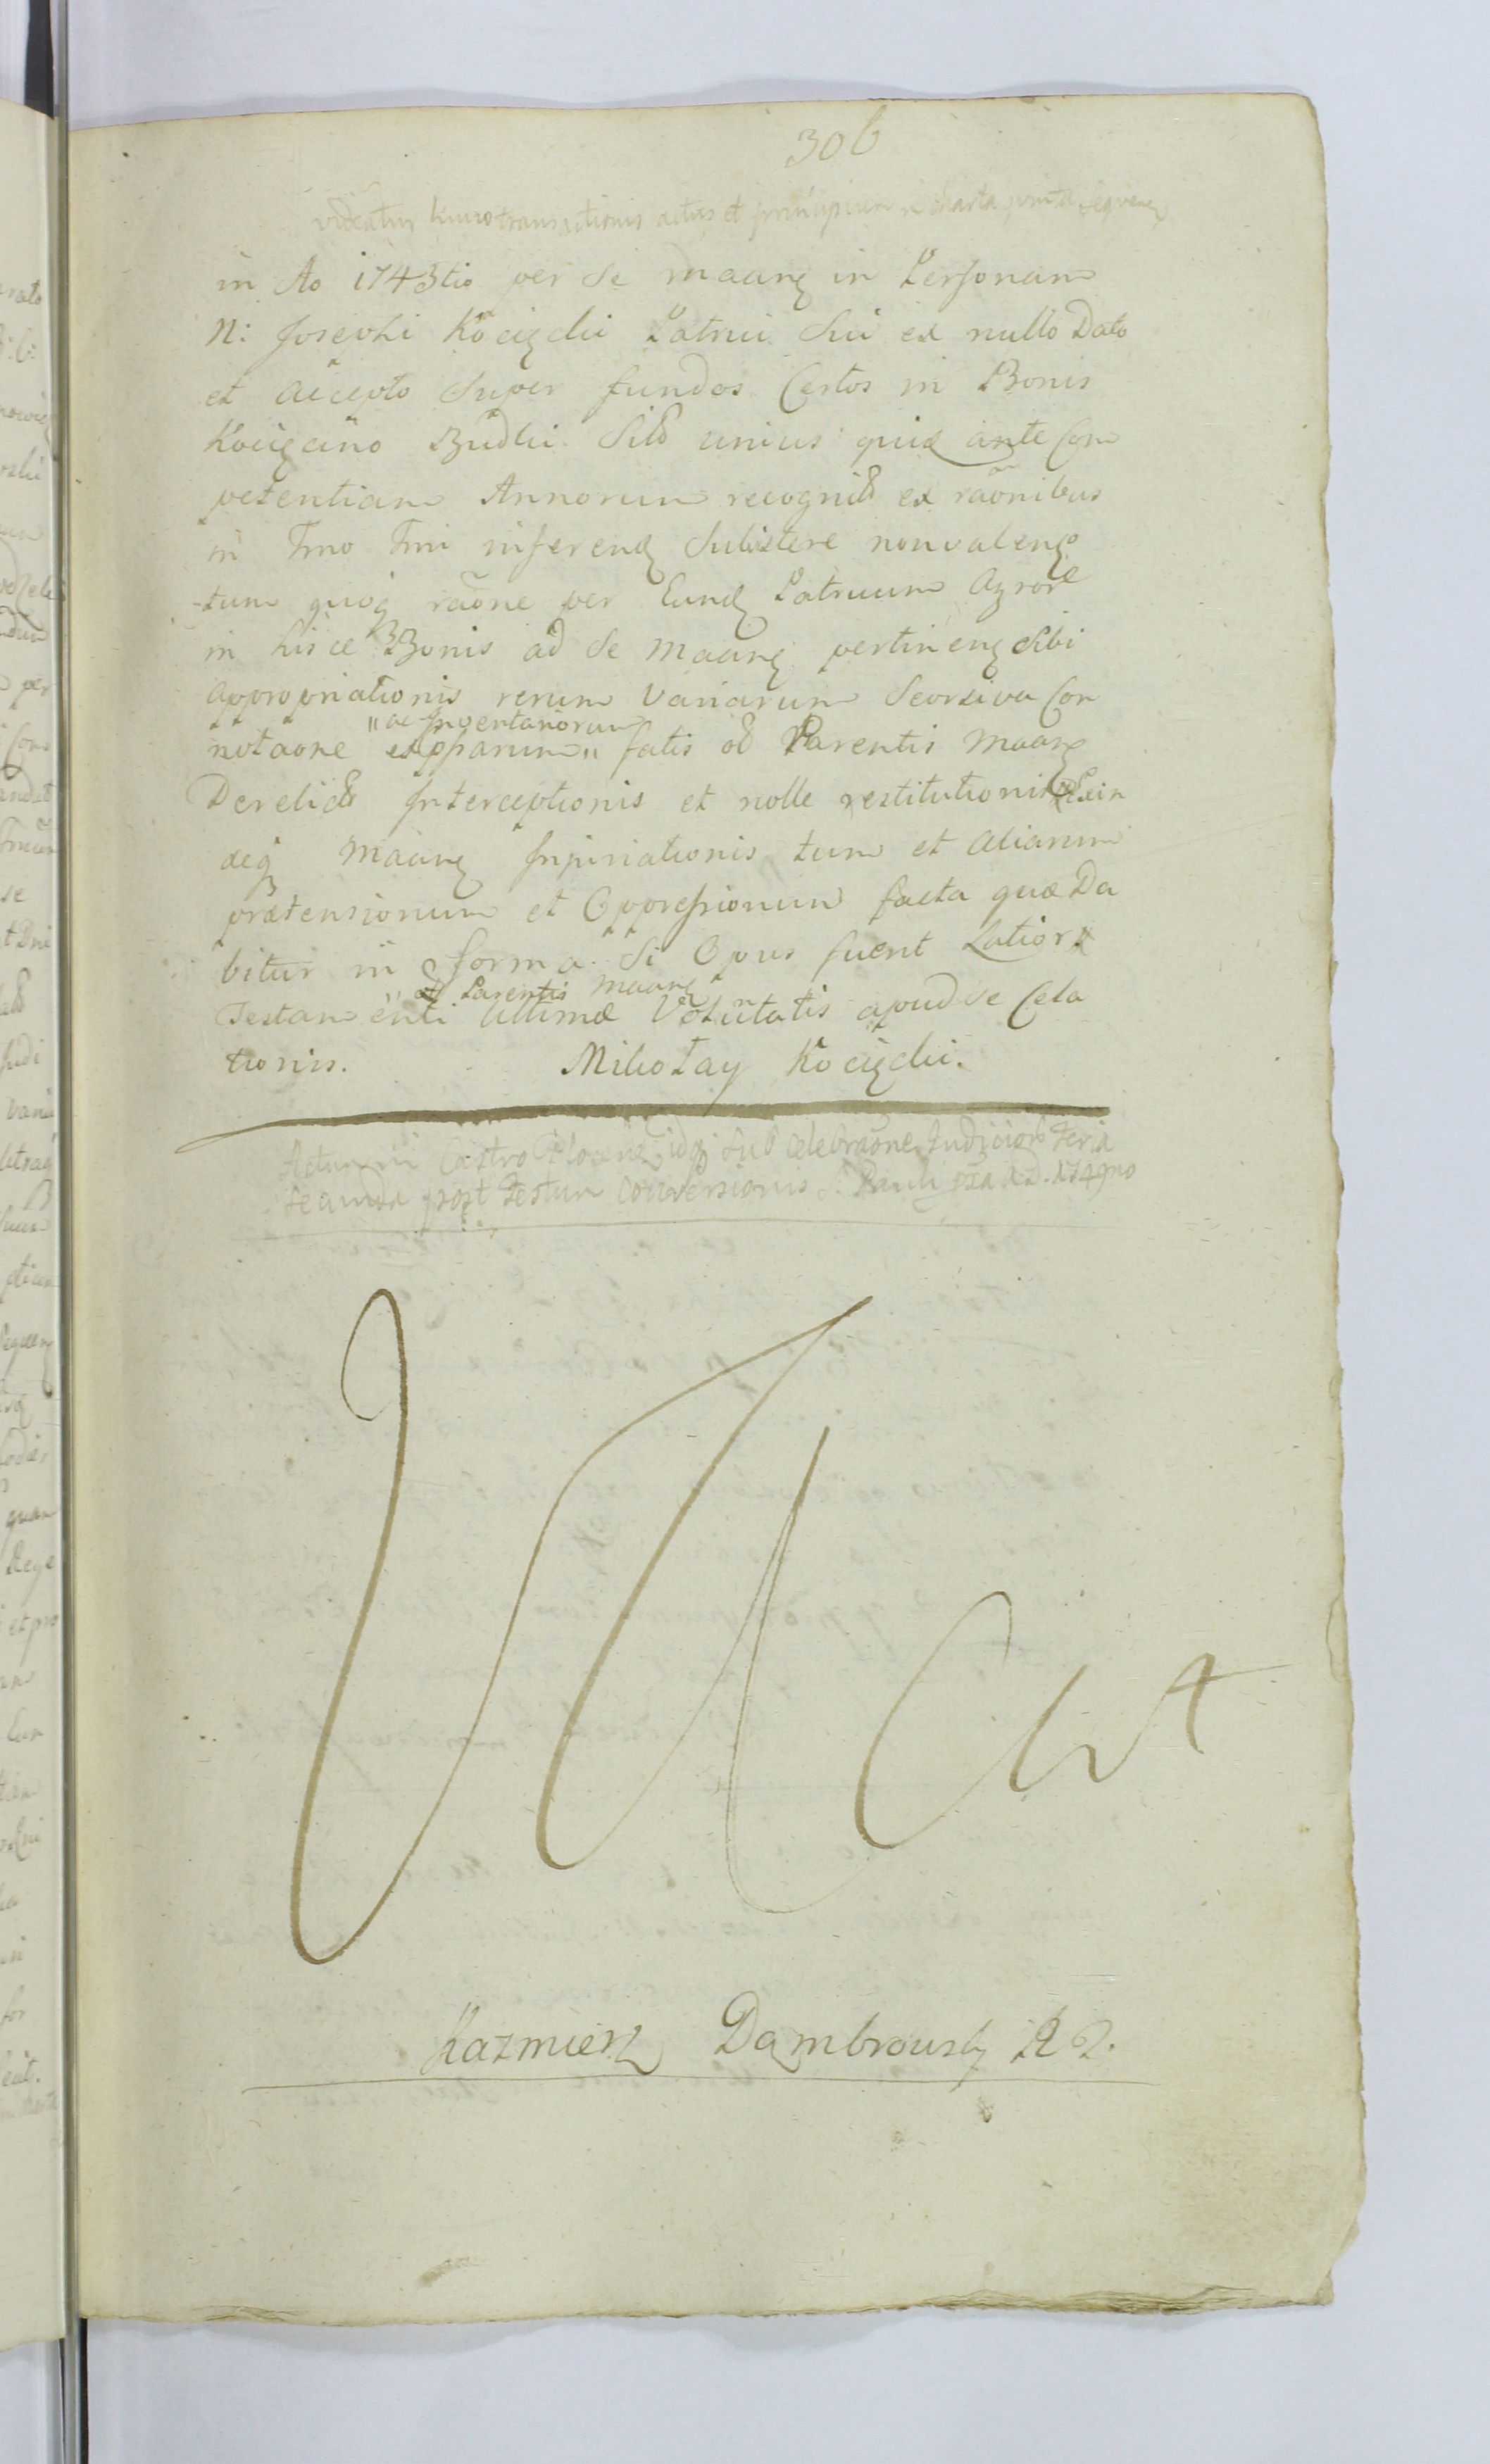 306
videatur huius transactionis actus et principium in charta
in Ao 1743tio per se maanẽ in Personam
N: Josephi Kocięcki Patrui Sui ex nullo Dato
et accepto Super fundos Certos in Bonis
Kocięcino Budki Sitt unius quid ante Com
petentiam Annorum recognit ex raõnibus
in Tmo Tmi inferend Subistere nonvalenẽ
tum quoq raõne per Eund Patruum Agror
in hisce BBonis ad Se maanẽ pertinenẽ Sibi
appropriationis rerum Variarum Seorsiva Con
notaone exppãrum " ac Inventariorum " fatis ob Parentis maanẽ
Derelict Interceptionis et nolle restitutionis Exin
deq maanẽ Injuriationis tum et aliarum
prætensionum et Oppressionum facta quæ Da
bitur in forma Si Opus fuerit Latior
Testamenti " ob Parentis maanẽ Ultimæ Voluntatis apud se Cela
tionis. Mikołay Kocięcki.
Actum in Castro Plocenẽ idq sub celebraõne Judicior Feria
secunda post Festum Conversionis S. Pauli pxa A.D. 1749no
Kazmierz Dambrowsky